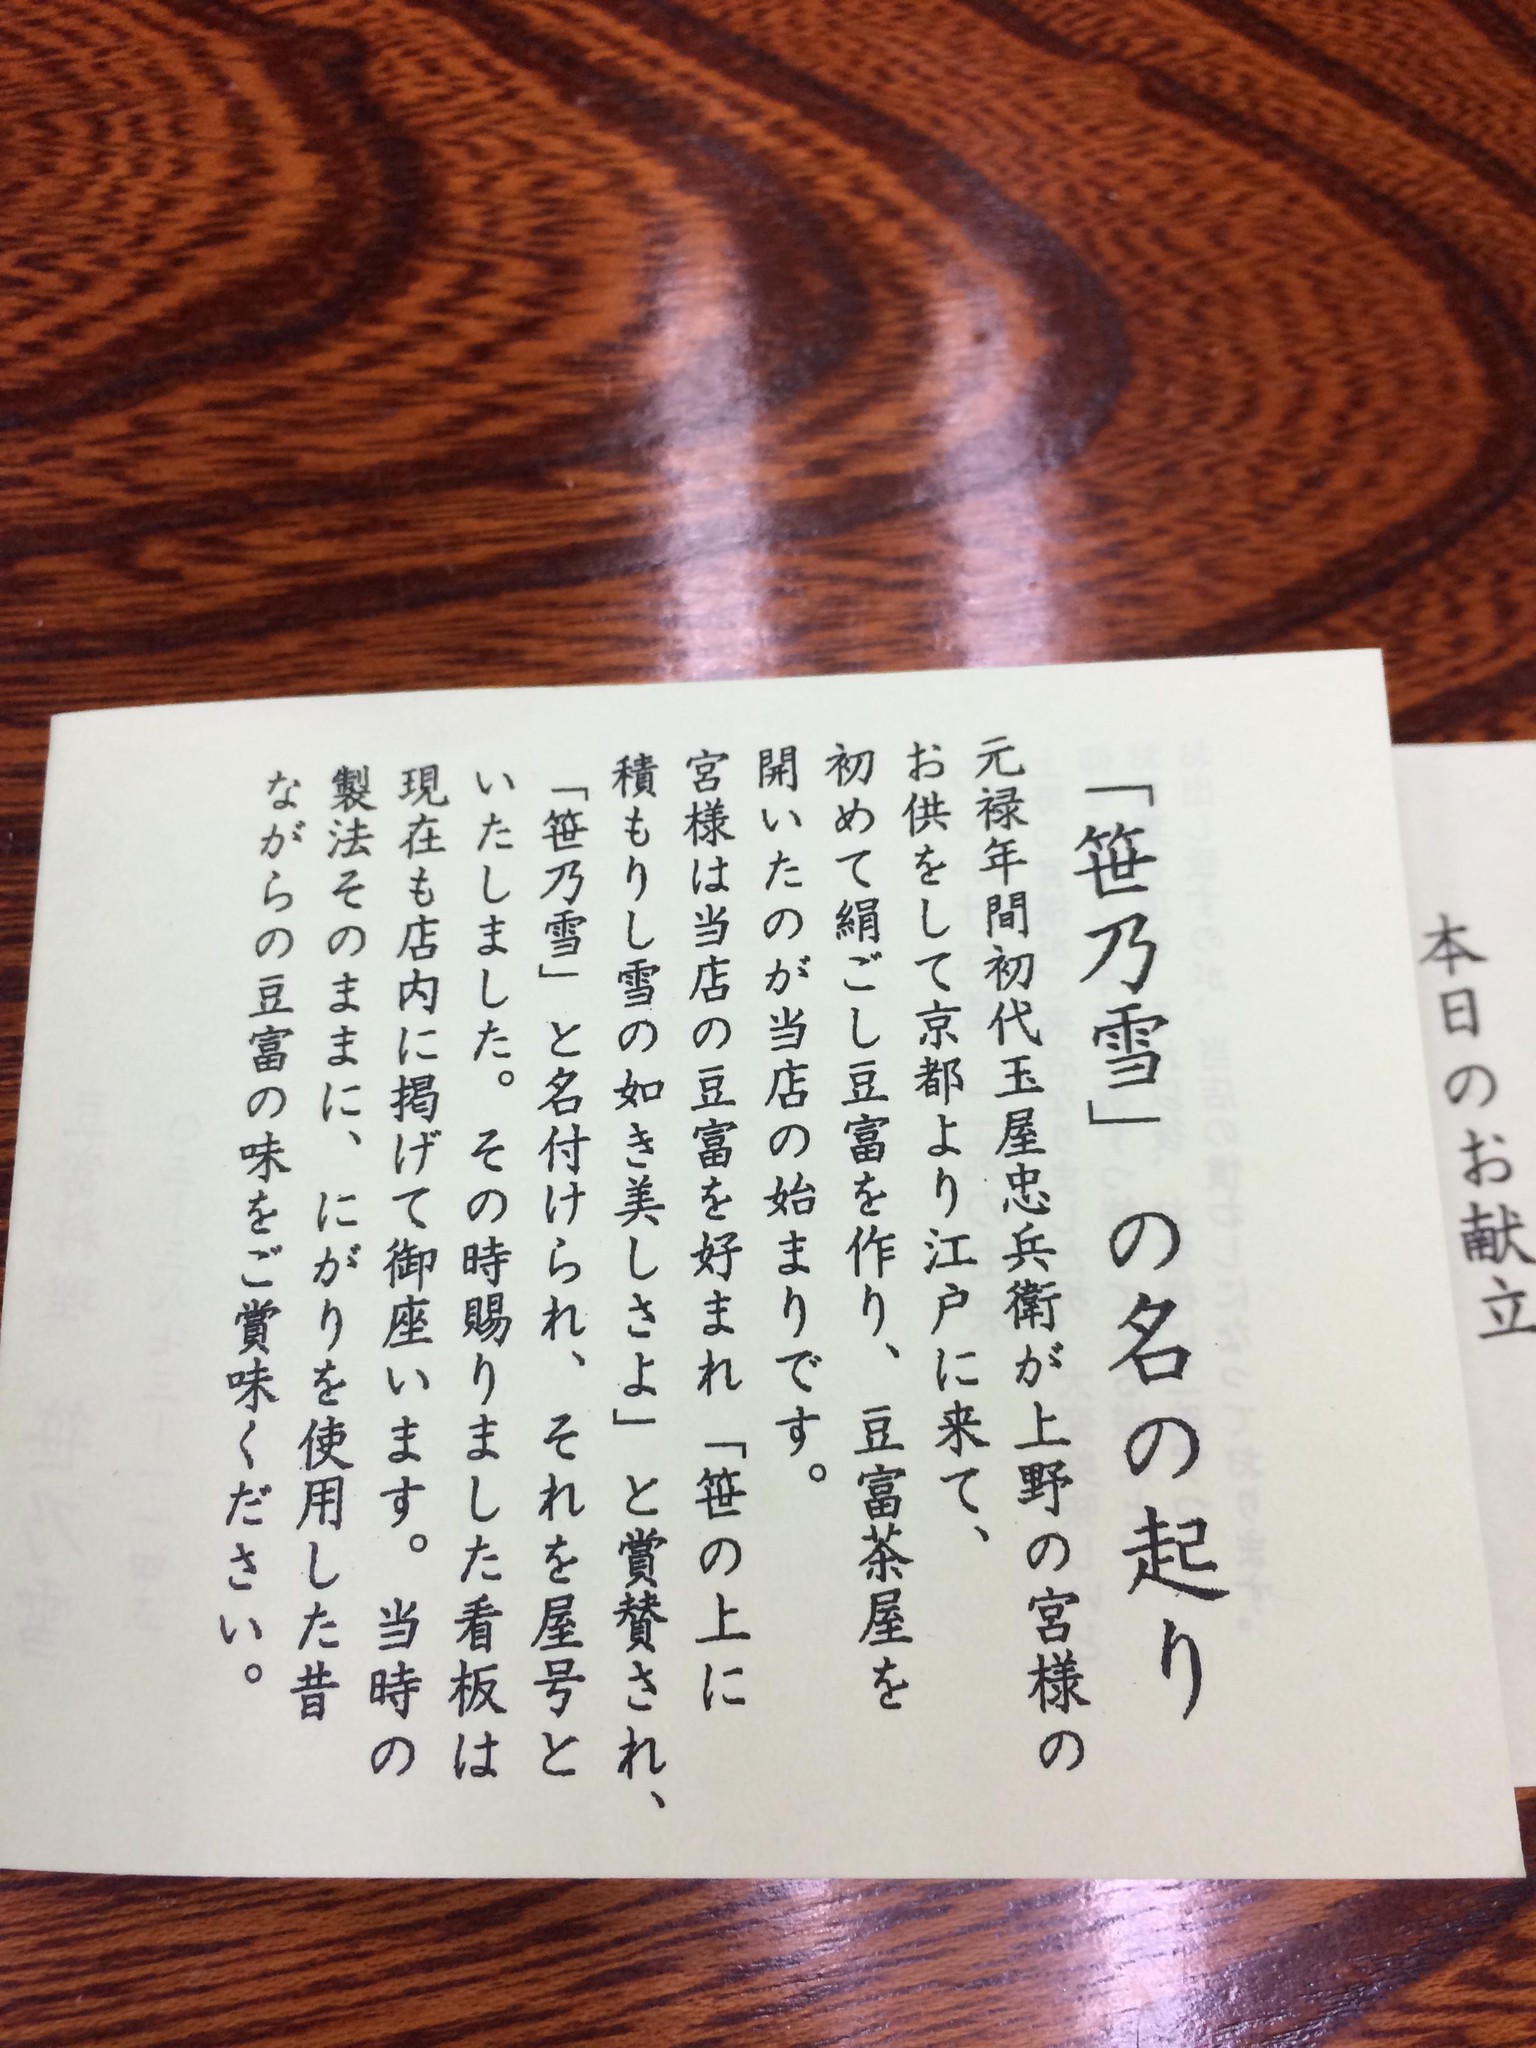 本日のお献立
「笹乃雪」の名の起り
元禄年間初代玉屋忠兵衛が上野の宮様の
お供をして京都より江戸に来て、
初めて絹ごし豆富を作り、豆富茶屋を
開いたのが当店の始まりです。
宮様は当店の豆富を好まれ「笹の上に
積もりし雪の如き美しさよ」と賞賛され、
「笹乃雪」と名付けられ、それを屋号と
いたしました。その時賜りました看板は
現在も店内に掲げて御座います。当時の
製法そのままに、にがりを使用した昔
ながらの豆富の味をご賞味ください。